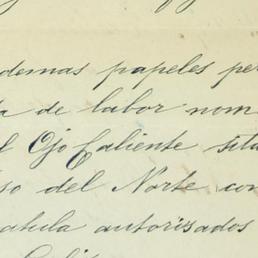 demas papeles per
de labor nom
l Ojo Caliente situ
so del Norte con
atula autorizados